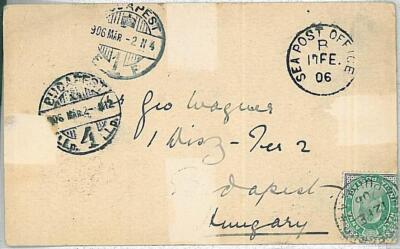 BUDAPEST
906 MAR-2 N 4
SEA POST OFFICE
B
17 FE.
06
BUDAPEST
906 MAR 2
4
Geo Wagner
1 Disz-Ter 2
dapest
Hungary